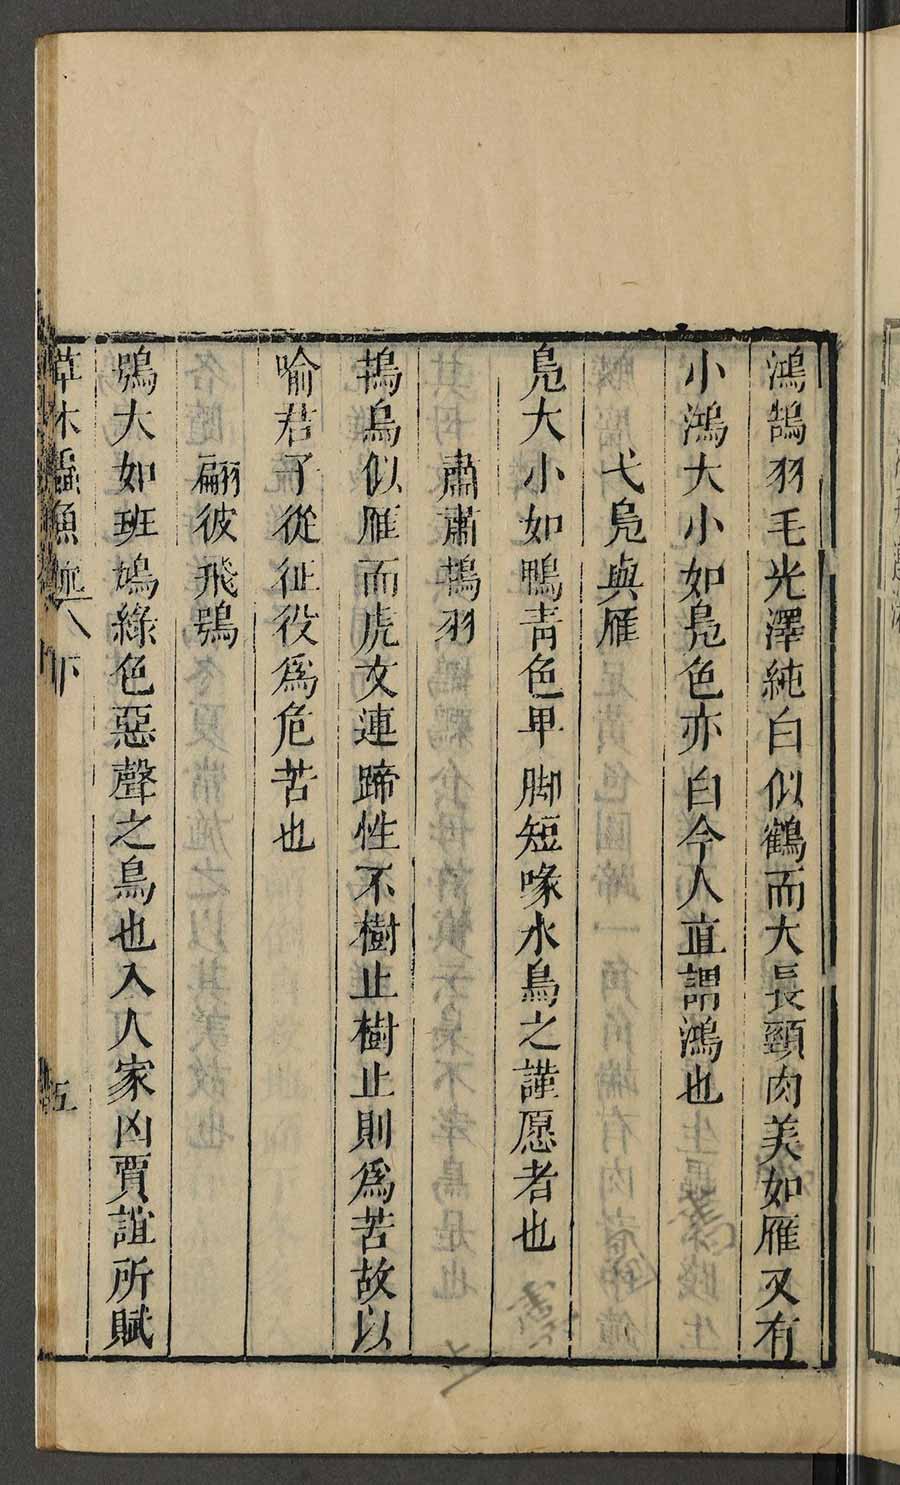 鴻鵠羽毛光澤純白似鶴而大長頸肉美如雁又有
小鴻大小如鳧色亦白今人直謂鴻也
弋鳧與雁
鳧大小如鴨青色甲脚短喙水鳥之謹愿者也
肅肅鴇羽
鴇鳥似雁而虎文連蹄性不樹止樹止則爲苦故以
喻君子從征役爲危苦也
翩彼飛鴞
鴞大如班鳩綠色惡聲之鳥也入人家凶賈誼所賦
草木蟲魚疏 下 五